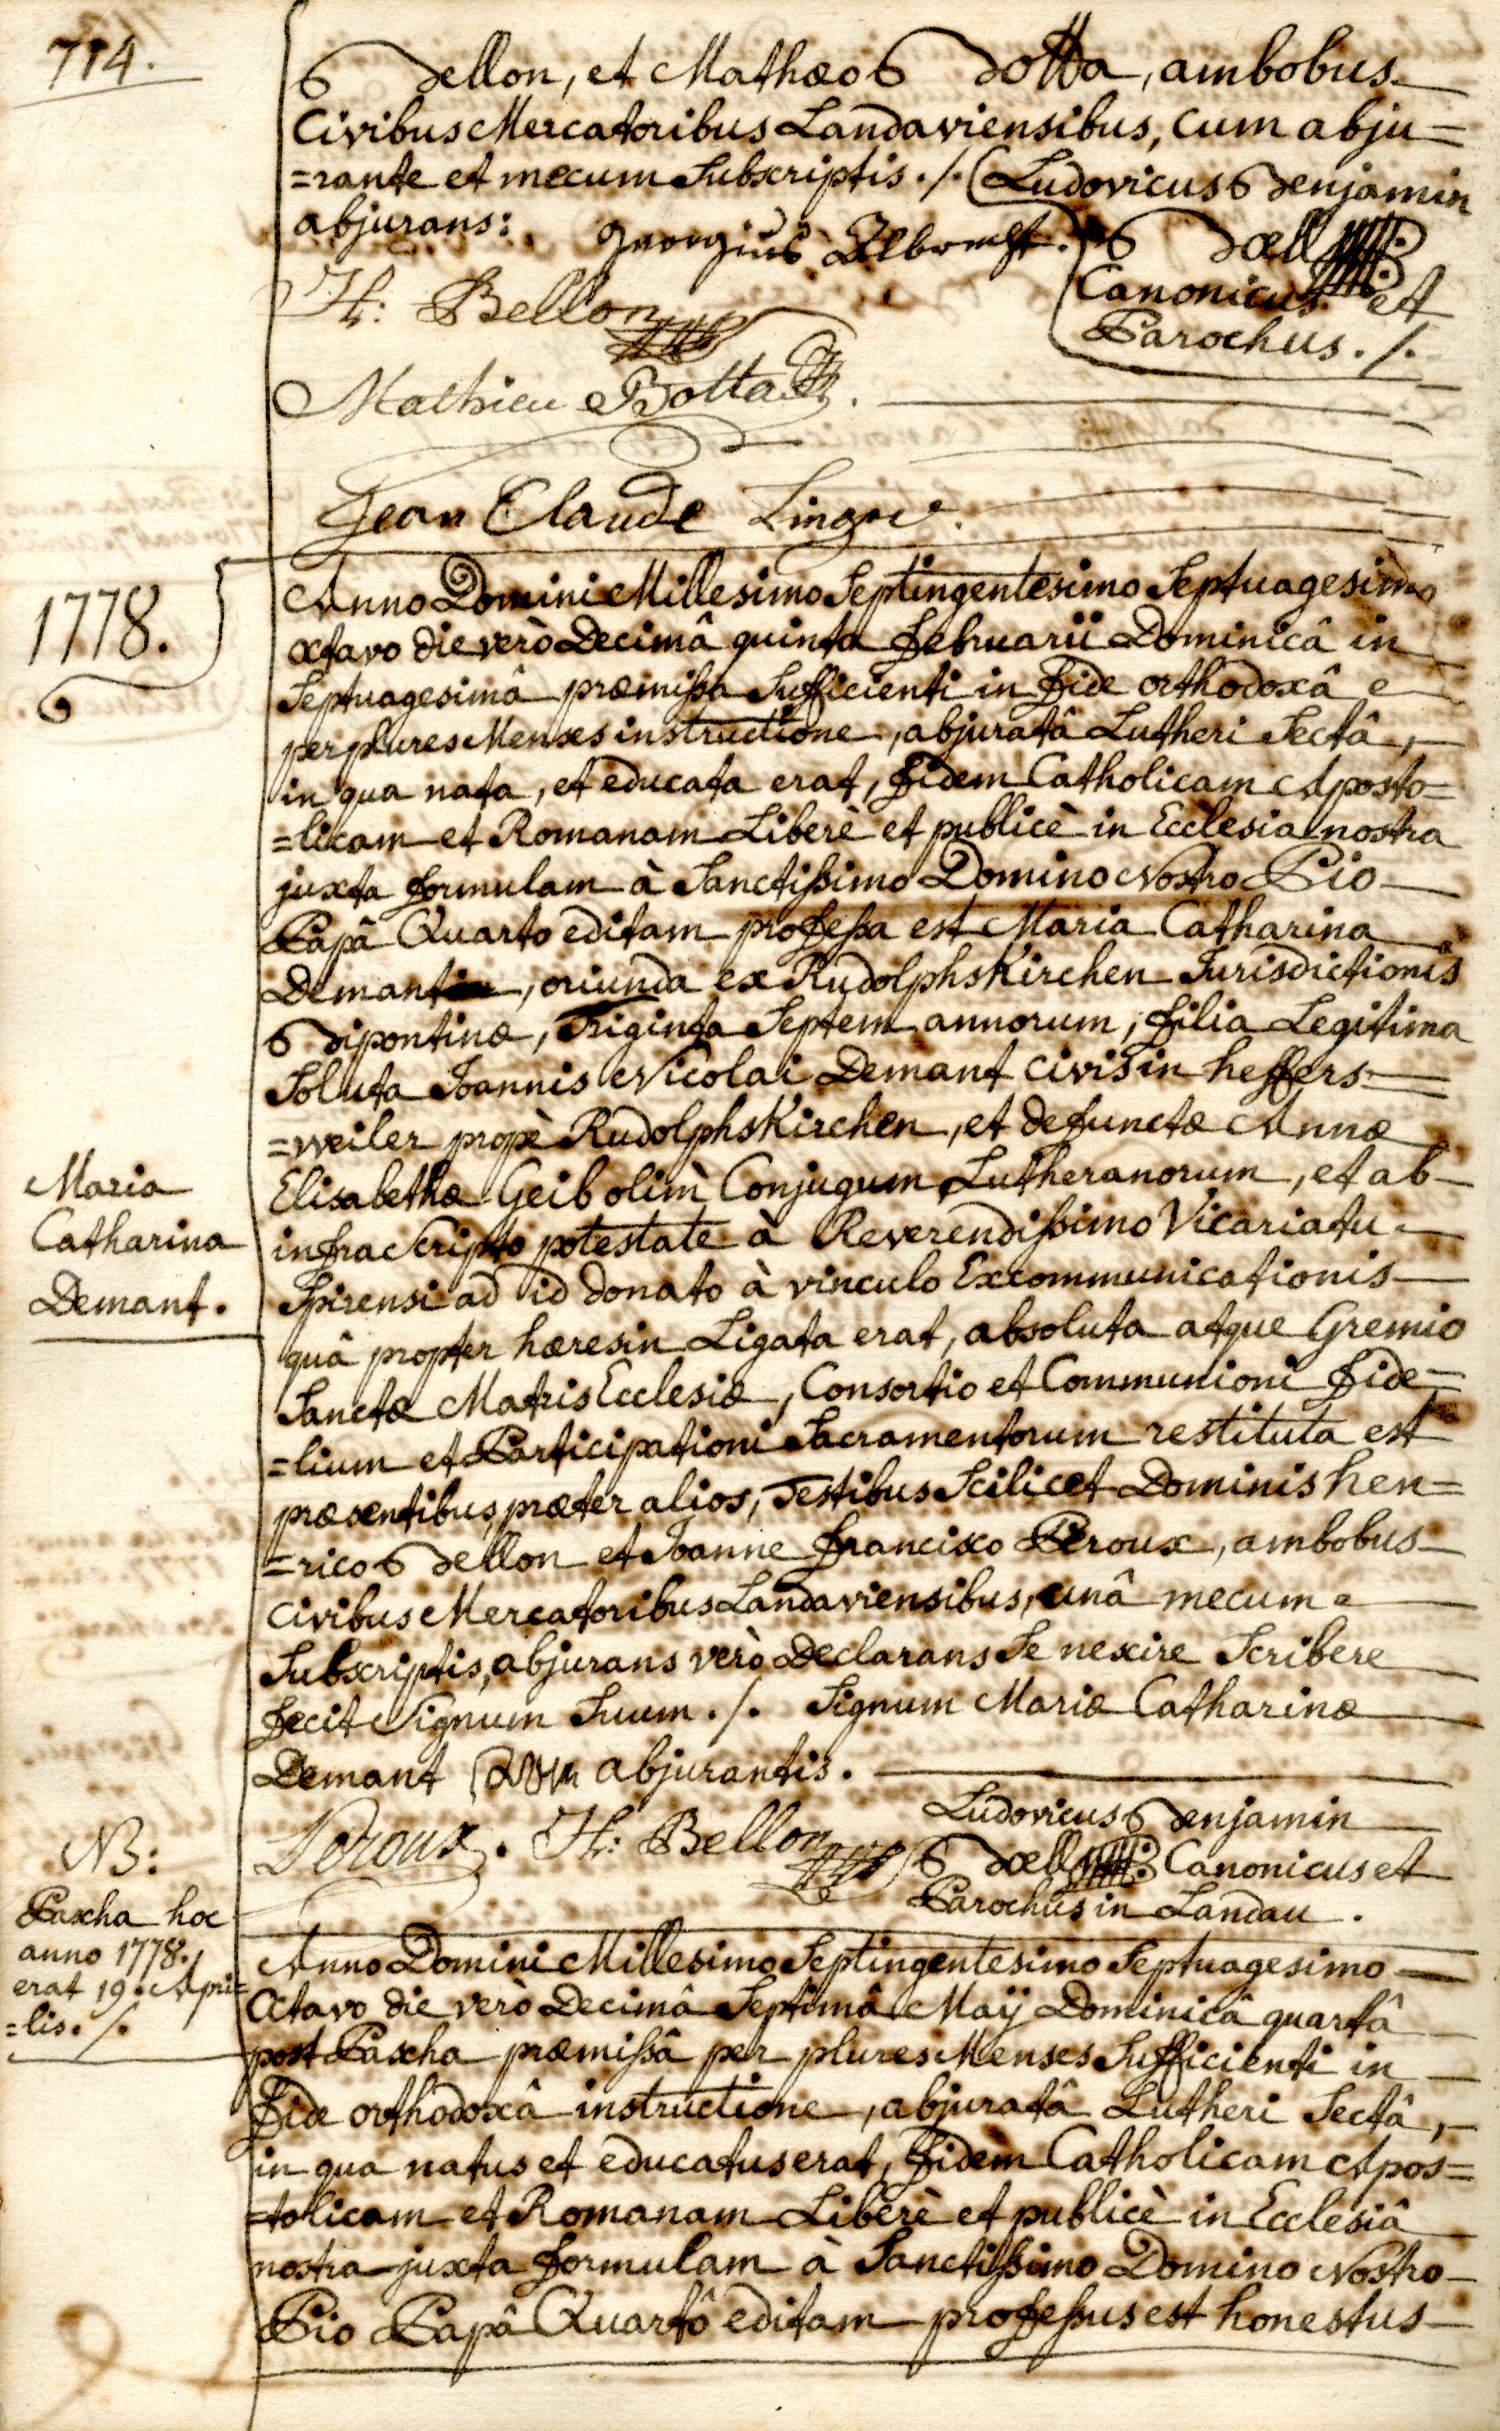 714.
Bellon, et Mathæo Botta, ambobus
Civibus Mercatoribus Landaviensibus, cum abju=
=rante et mecum Subscriptis ./. Ludovicus Benjamin
abjurans: Georgius Bœll
H: Bellon Canonicus et
Parochus ./.
Mathieu Botta.
Jean Claude
1778.
Anno Domini Millesimo Septingentesimo Septuagesimo
octavo die verò Decimâ quinta februarii Dominicâ in
Septuagesimâ præmissa Sufficienti in fide orthodoxâ
per plures Menses instructione, abjuratâ Lutheri Sectâ,
in qua nata, et educata erat, fidem Catholicam Aposto=
=licam et Romanam Liberè et publicè in Ecclesia nostra
juxta formulam à Sanctissimo Domino Nostro Pio
Papâ Quarto editam professa est Maria Catharina
Demant, oriunda ex Rudolphskirchen Jurisdictionis
Bipontinæ, Triginta Septem annorum, filia Legitima
Soluta Joannis Nicolai Demant civis in heffers=
=weiler propè Rudolphskirchen, et defunctæ Annæ
Elisabethæ Geib olim Conjugum Lutheranorum, et ab
infra Scripto potestate à Reverendissimo Vicariatu
Spirensi ad id donato à vinculo Excommunicationis
quâ propter hæresin Ligata erat, absoluta atque Gremio
Sanctæ Matris Ecclesiæ, Consortio et Communioni fide=
=lium et Participationi Sacramentorum restituta est
præsentibus, præter alios, Testibus Scilicet Dominis hen=
=rico Bellon et Joanne francisco Peroux, ambobus
civibus Mercatoribus Landaviensibus, unâ mecum
Subscriptis, abjurans verò Declarans Se nescire Scribere
fecit Signum Suum ./. Signum Mariæ Catharinæ
Demant abjurantis.
Maria
Catharina
Demant.
Peroux. H: Bellon Ludovicus Benjamin
Bœll Canonicus et
Parochus in Landau.
NB:
Pascha hoc
anno 1778.
erat 19. Apri=
=lis ./.
Anno Domini Millesimo Septingentesimo Septuagesimo
Octavo die verò Decimâ Septimâ Maÿ Dominicâ quartâ
post Pascha præmissâ per plures Menses Sufficienti in
fide orthodoxâ instructione, abjuratâ Lutheri Sectâ,
in qua natus et educatus erat, fidem Catholicam Apos=
=tolicam et Romanam Liberè et publicè in Ecclesiâ
nostra juxta formulam à Sanctissimo Domino Nostro
Pio Papâ Quartô editam professus est honestus